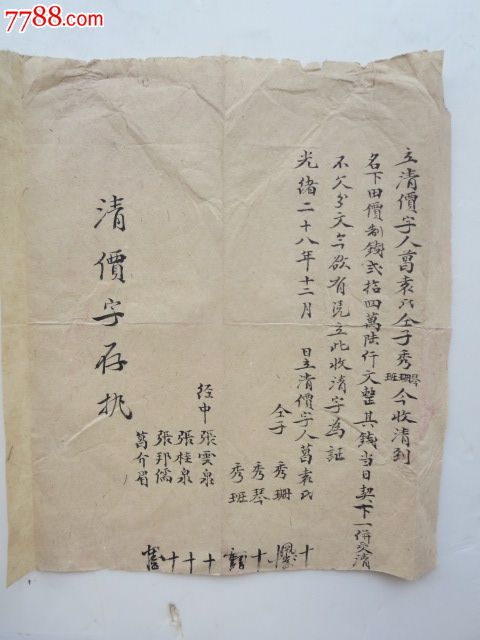 7788.com
中国收藏热线
立清價字人葛袁氏仝子秀珊琴班今收清到
名下田價制錢弍拾四萬陆仟文整其錢当日契下一併交清
不欠分文今欲有凭立此收清字為証
光緒二十八年十二月 日立清價字人葛袁氏
仝子 秀珊
秀琴
秀班
经中 張雲泉
張桂泉
張邦儒
葛介眉
清價字存执
十 十 十 十 十